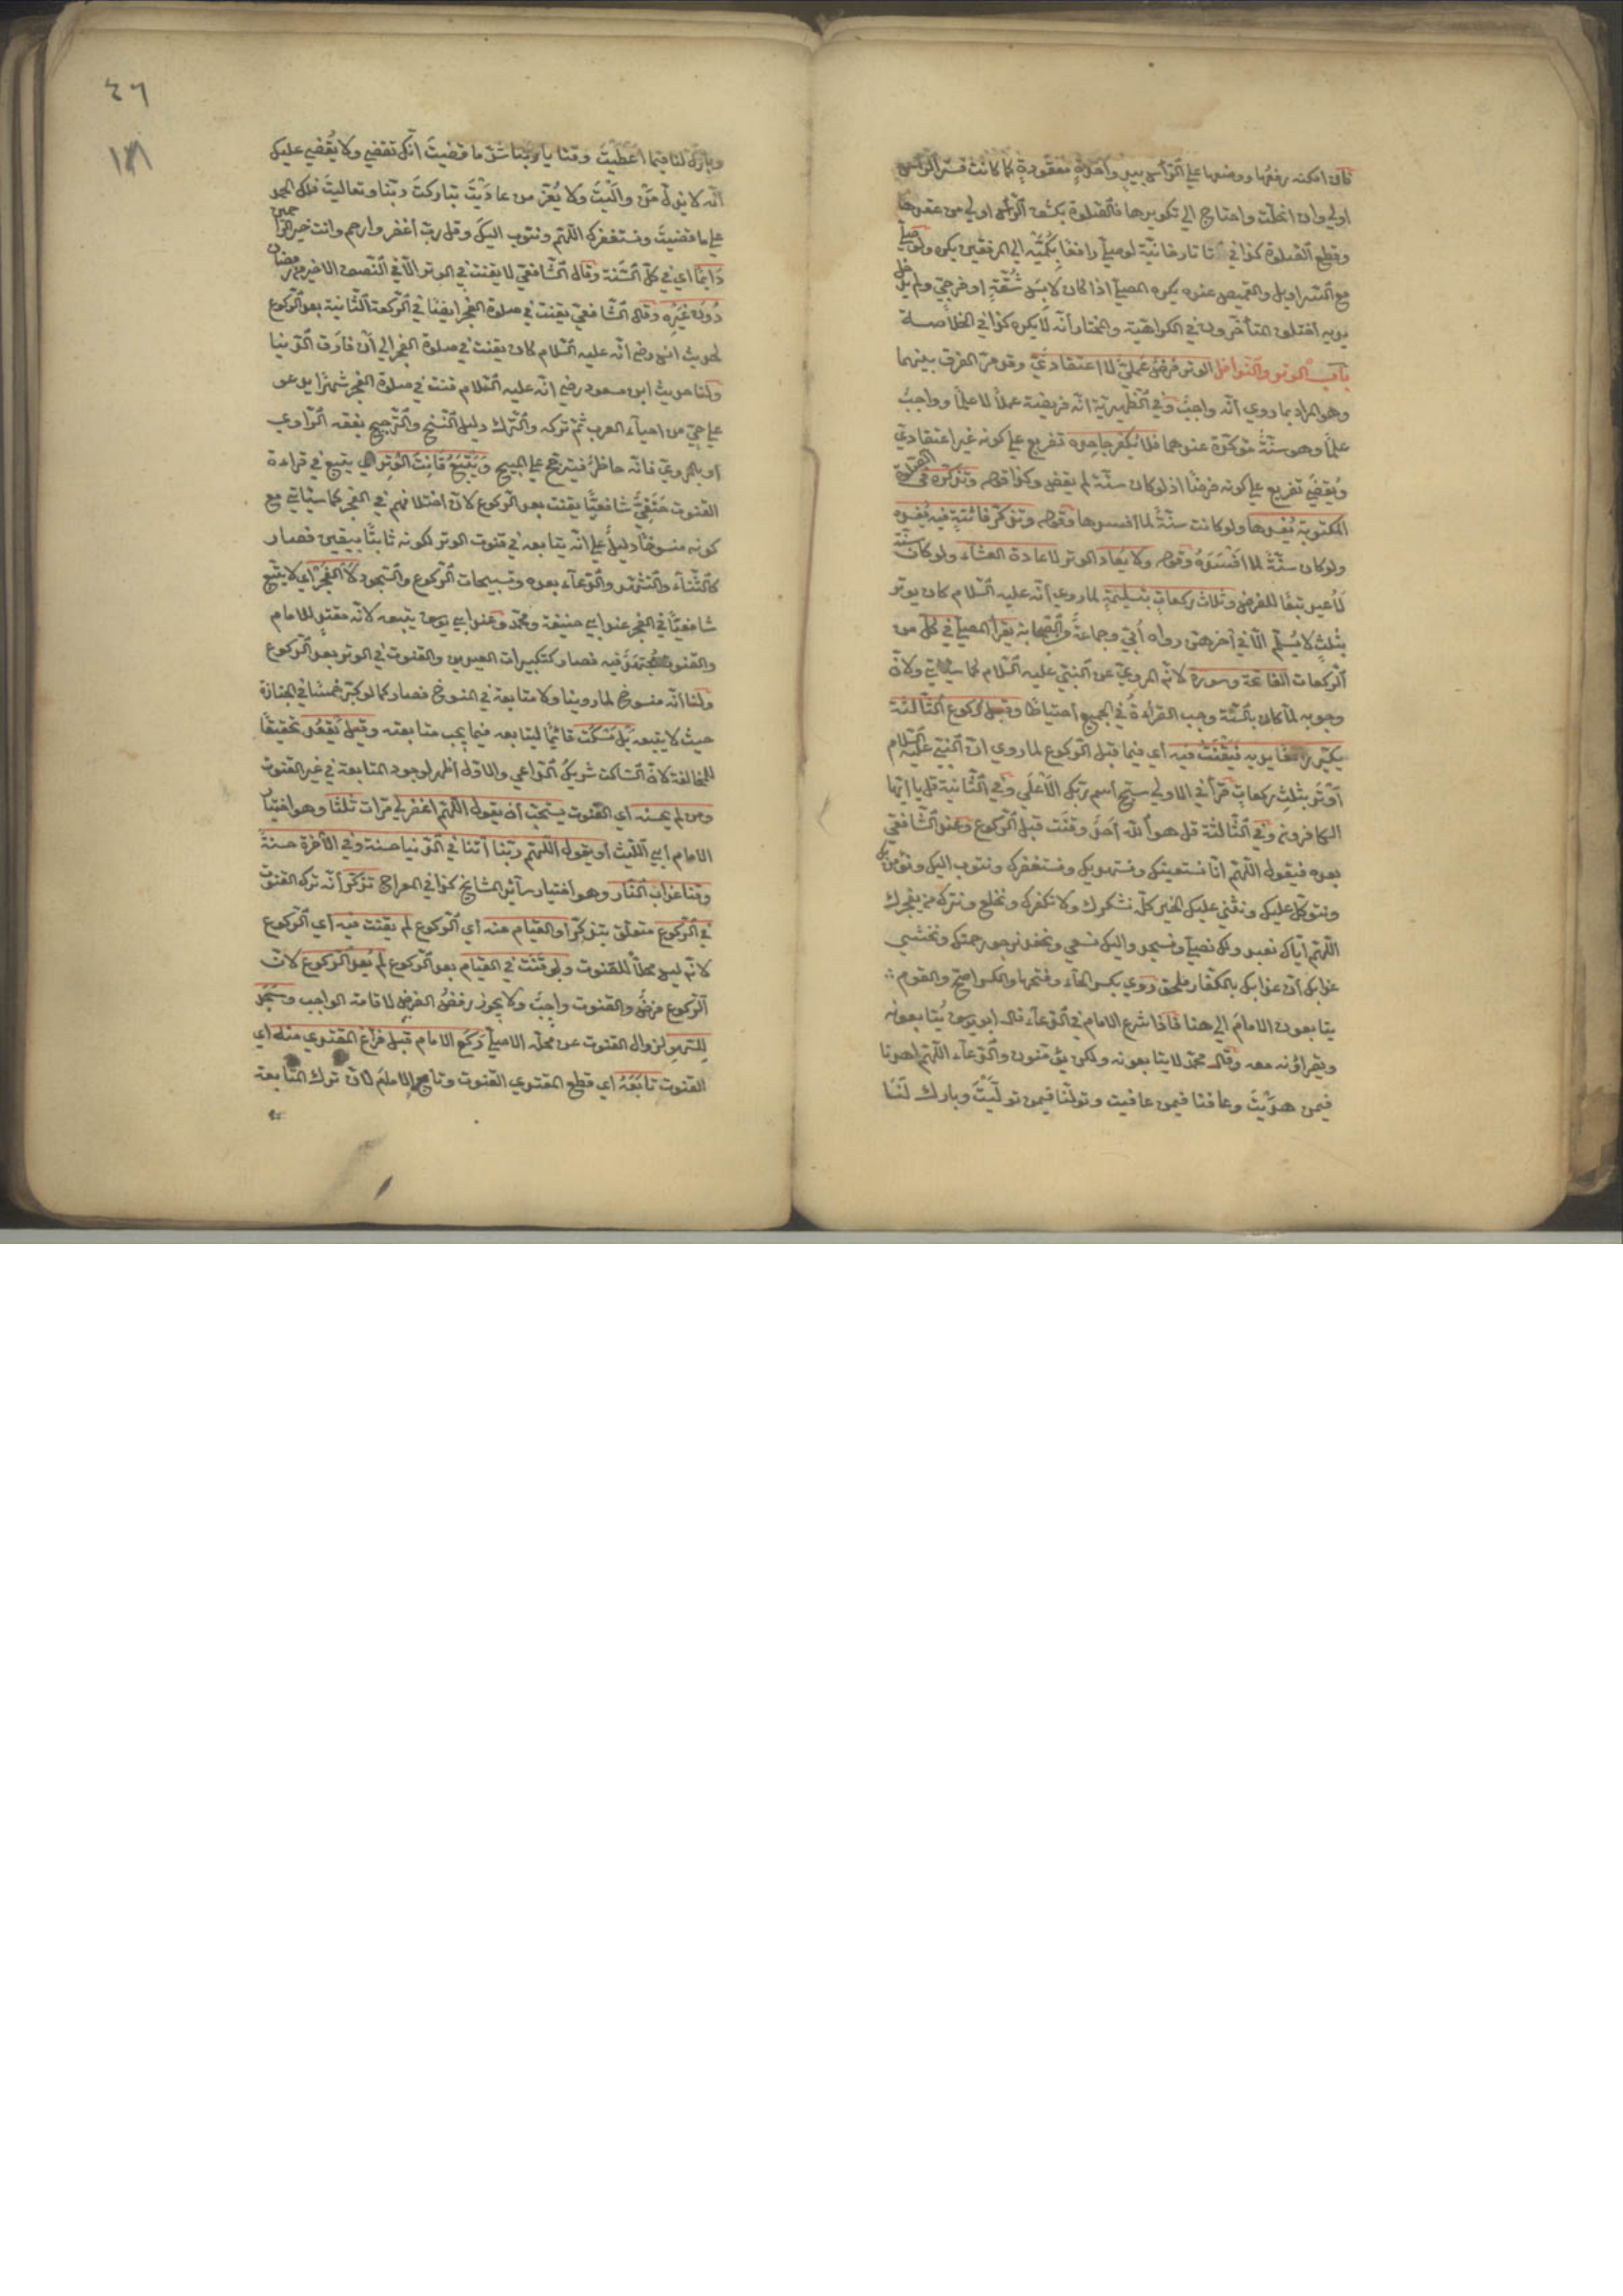 فان امكنه رفعها ووضعها على الرأس بيد واحدة معقودة كما كانت فستر الرأس
اولى وان انحلت واحتاج الى تكويرها فالصلوة بكشف الرأس اولى من عقدها
وقطع الصلوة كذا في تاتارخانية لو صلى رافعا بكميه الى المرفقين يكره ولو صلى
مع السراويل والقميص عنده يكره المصلي اذا كان لابس شقة او فرجي ولم يدخل
يديه اختلف المتأخرون في الكراهية والمختار أنه لا يكره كذا في الخلاصة
باب الوتر والنوافل الوتر فرض عملي لا اعتقادي وقد مر الفرق بينهما
وهو المراد بما روي أنه واجب وفي الظهيرية انه فريضة عملا لا علما وواجب
علما وهو سنة مؤكدة عندهما فلا يكفر جاحده تفريع على كونه غير اعتقادي
ويقضى تفريع على كونه فرضا اذ لو كان سنة لم يقض وكذا قوله وتذكره في الصلوة
المكتوبة يفسدها ولو كانت سنة لما افسدها وقوله وتذكر فائتة فيه يفسده
ولو كان سنة لما افسده وقوله ولا يعاد الوتر لاعادة العشاء ولو كان سنة
لأعيد تبعا للفرض وثلاث ركعات بتسليمة لما روي أنه عليه السلام كان يوتر
بثلث لا يسلم الا في آخرهن رواه أبي وجماعة والصحابة يقرأ المصلي في كل من
الركعات الفاتحة وسورة لانه المروي عن النبي عليه السلام كما سيأتي ولان
وجوبه لما كان بالسنة وجب القراءة في الجميع احتياطا وقبل ركوع الثالثة
يكبر رافعا يديه فيقنت فيه أي فيما قبل الركوع لما روي ان النبي عليه السلام
أوتر بثلث ركعات قرأ في الاولى سبح اسم ربك الأعلى وفي الثانية قل يا ايها
الكافرون وفي الثالثة قل هو الله أحد وقنت قبل الركوع وعند الشافعي
بعده فيقول اللهم انا نستعينك ونستهديك ونستغفرك ونتوب اليك ونؤمن بك
ونتوكل عليك ونثني عليك الخير كله نشكرك ولا نكفرك ونخلع ونترك من يفجرك
اللهم اياك نعبد ولك نصلي ونسجد واليك نسعى ونحفد نرجو رحمتك ونخشى
عذابك أن عذابك بالكفار ملحق روي بكسر الحاء وفتحها والكسر اصح والقوم
يتابعون الامام الى هنا فاذا شرع الامام في الدعاء قال ابو يوسف يتابعونه
ويقرأونه معه وقال محمد لا يتابعونه ولكن يؤمنون والدعاء اللهم اهدنا
فيمن هديت وعافنا فيمن عافيت وتولنا فيمن توليت وبارك لنا
٤٦
وبارك لنا فيما أعطيت وقنا يا ربنا شر ما قضيت انك تقضي ولا يقضى عليك
انه لا يذل من واليت ولا يعز من عاديت تباركت ربنا وتعاليت فلك الحمد
على ما قضيت ونستغفرك اللهم ونتوب اليك وقل رب أغفر وارحم وانت خير الراحمين
دائما اي في كل السنة وقال الشافعي لا يقنت في الوتر الا في النصف الاخير من رمضان
دون غيره وقال الشافعي يقنت في صلوة الفجر ايضا في الركعة الثانية بعد الركوع
لحديث انس رضي انه عليه السلام كان يقنت في صلوة الفجر الى أن فارق الدنيا
ولنا حديث ابن مسعود رضي انه عليه السلام قنت في صلوة الفجر شهرا يدعو
على حي من احياء العرب ثم تركه والترك دليل النسخ والترجيح بفقه الراوي
او بالمروي فانه حاظر فيترجح على المبيح ويتبع قانت الوتر اي يتبع في قراءة
القنوت حنفي شافعيا يقنت بعد الركوع لان اختلافهم في الفجر كما سيأتي مع
كونه منسوخا دليل على انه يتابعه في قنوت الوتر لكونه ثابتا بيقين فصار
كالثناء والتشهد والدعاء بعده وتسبيحات الركوع والسجود لا الفجر اي لا يتبع
شافعيا في الفجر عند ابي حنيفة ومحمد وعند ابي يوسف يتبعه لانه مقتد للامام
والقنوت مجتهد فيه فصار كتكبيرات العيدين والقنوت في الوتر بعد الركوع
ولنا أنه منسوخ لما روينا ولا متابعة في المنسوخ فصار كما لو كبر خمسا في الجنازة
حيث لا يتبعه بل يسكت قائما ليتابعه فيما يجب متابعته وقيل يقعد تحقيقا
للمخالفة لان الساكت شريك الداعي والاول أظهر لوجود المتابعة في غير القنوت
ومن لم يحسنه اي القنوت يستحب أن يقول اللهم اغفر لي مرات ثلثا وهو اختيار
الامام أبي الليث أو يقول اللهم ربنا أتنا في الدنيا حسنة وفي الأخرة حسنة
وقنا عذاب النار وهو اختيار سائر المشايخ كذا في المعراج تذكر أنه ترك القنوت
في الركوع متعلق بتذكر أو القيام منه أي الركوع لم يقنت فيه أي الركوع
لانه ليس محلا للقنوت ولو قنت في القيام بعد الركوع لم يعد الركوع لان
الركوع فرض والقنوت واجب ولا يجوز رفض الفرض لاقامة الواجب وسجد
للسهو لزوال القنوت عن محله الاصلي ركع الامام قبل فراغ المقتدي منه اي
القنوت تابعه اي قطع المقتدي القنوت وتابع الامام لان ترك المتابعة